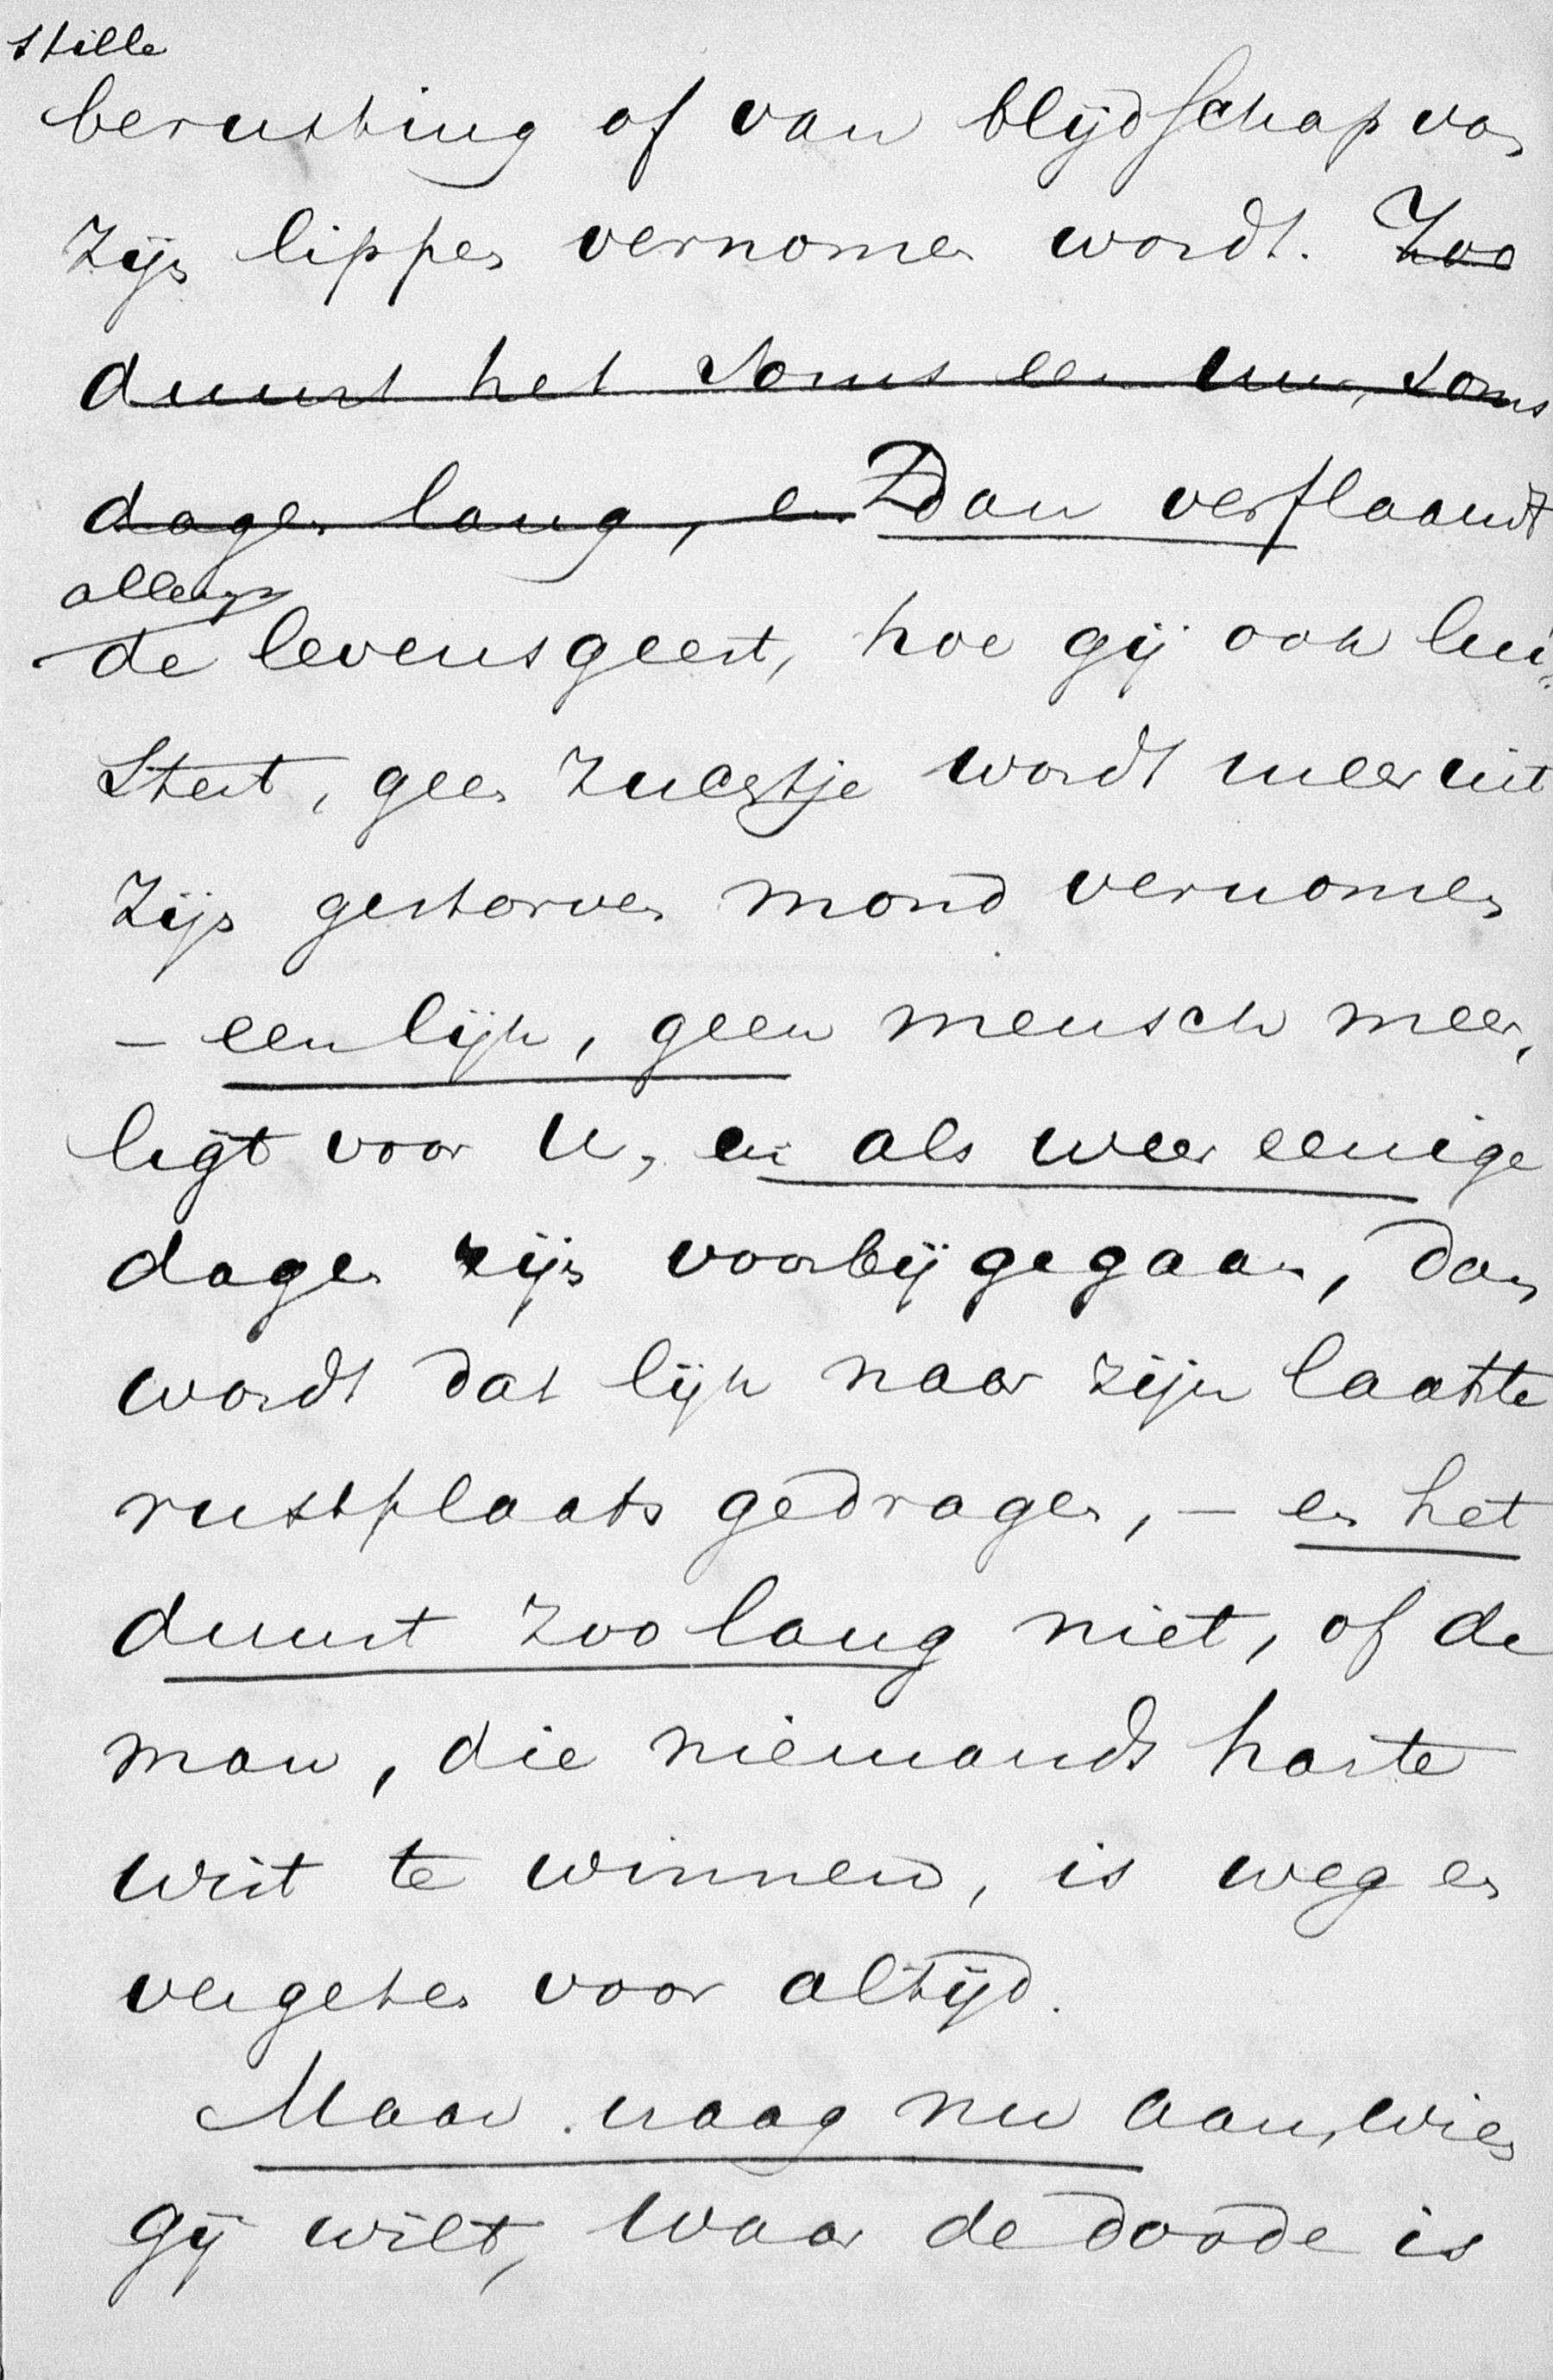 stille
berusting of van blijdschap van
zijn lippen vernomen wordt. Zoo
duurt het soms een uur, soms
dagen lang, en Dan verflaauwt
allengs
de levensgeest, hoe gij ook lui-
stert, geen zuchtje wordt meer uit
zijn gestorven mond vernomen
– een lijk, geen mensch meer,
ligt voor U, en als weer eenige
dagen zijn voorbijgegaan, dan
wordt dat lijk naar zijn laatste
rustplaats gedragen, – en het
duurt zoo lang niet, of de
man, die niemands harte
wist te winnen, is weg en
vergeten voor altijd.
Maar vraag nu aan, wien
gij wilt, waar de doode is